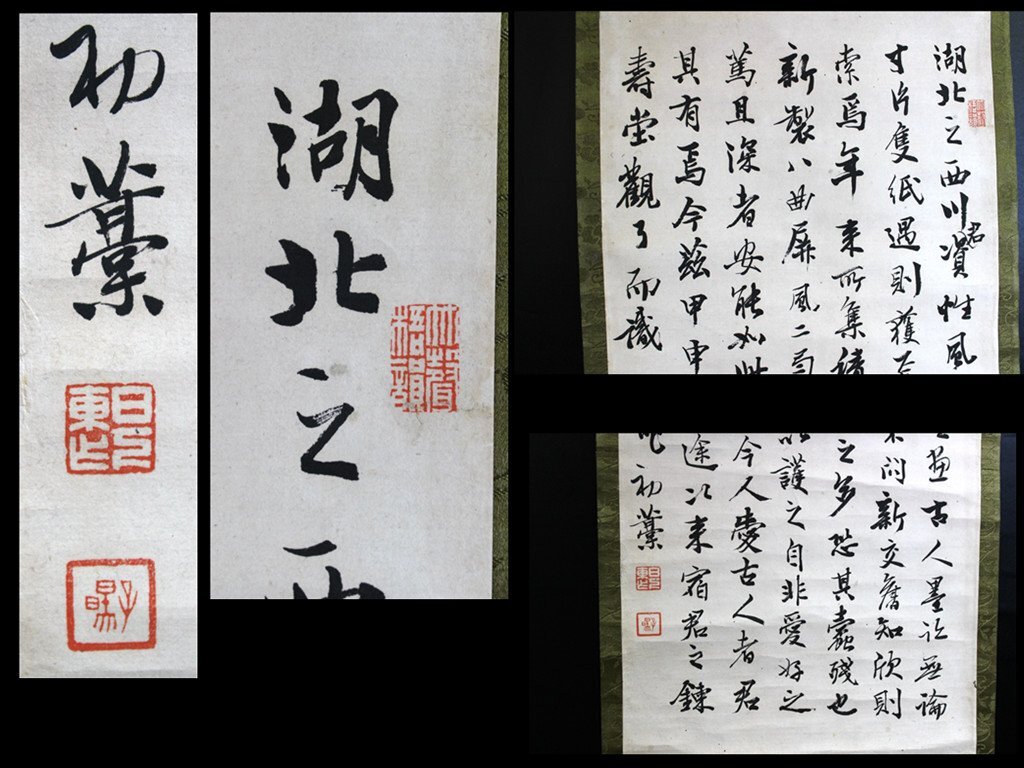 初藁
湖北之西
湖北之西川君資性風
寸片隻紙遇則獲
索焉年来所集積
新製八曲屏風二
篤且深者安能如此
具有焉今茲甲申
壽堂觀了而識
畫古人墨迹無論
問新交舊知欣則
之多恐其蠹殘也
以護之自非愛好之
今人愛古人者君
途次来宿君之鍊
初藁